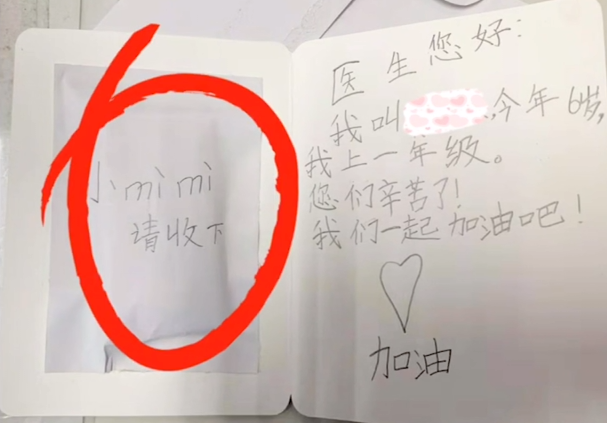 小mimi
请收下
医生您好：
我叫 ,今年6岁,
我上一年级。
您们辛苦了!
我们一起加油吧！
加油